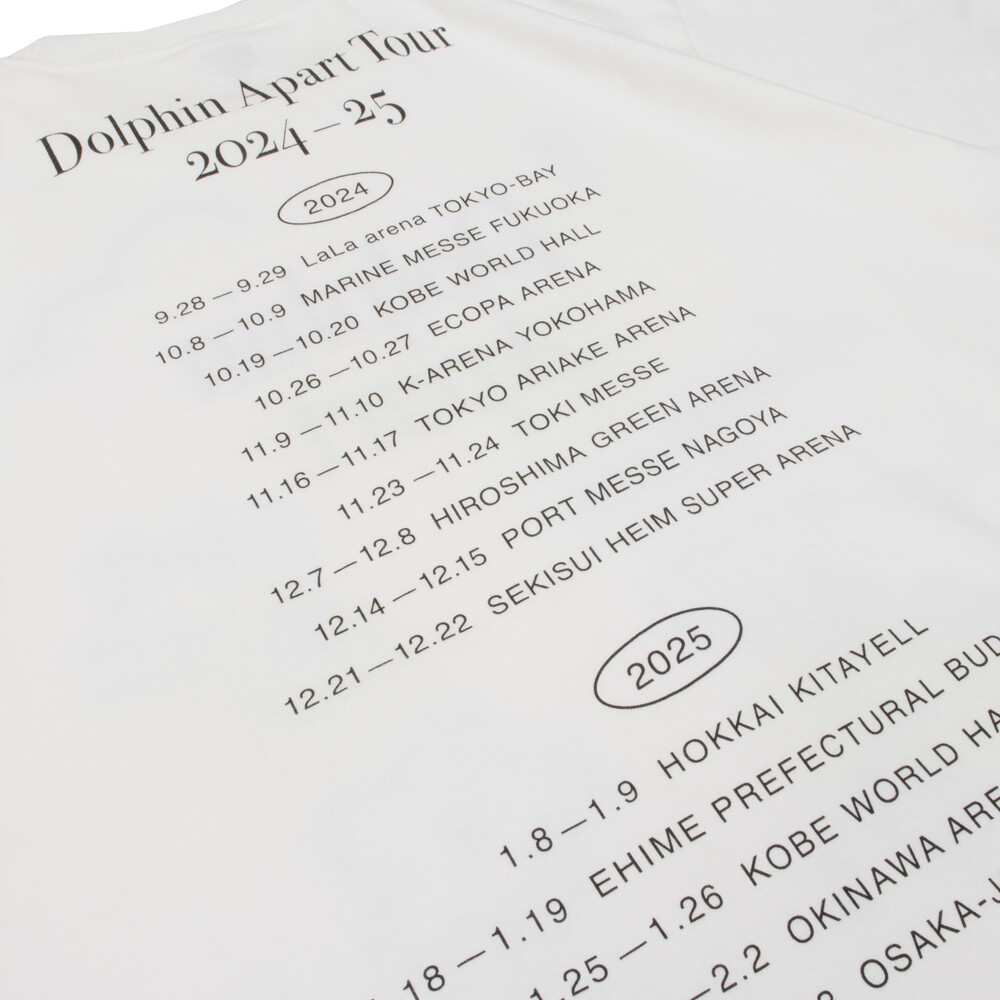 Dolphin Apart Tour
2024–25
2024
9.28 — 9.29 LaLa arena TOKYO-BAY
10.8 — 10.9 MARINE MESSE FUKUOKA
10.19 — 10.20 KOBE WORLD HALL
10.26 — 10.27 ECOPA ARENA
11.9 — 11.10 K-ARENA YOKOHAMA
11.16 — 11.17 TOKYO ARIAKE ARENA
11.23 — 11.24 TOKI MESSE
12.7 — 12.8 HIROSHIMA GREEN ARENA
12.14 — 12.15 PORT MESSE NAGOYA
12.21 — 12.22 SEKISUI HEIM SUPER ARENA
2025
1.8 — 1.9 HOKKAI KITAYELL
18 — 1.19 EHIME PREFECTURAL
.25 — 1.26 KOBE WORLD
— 2.2 OKINAWA
OSAKA-